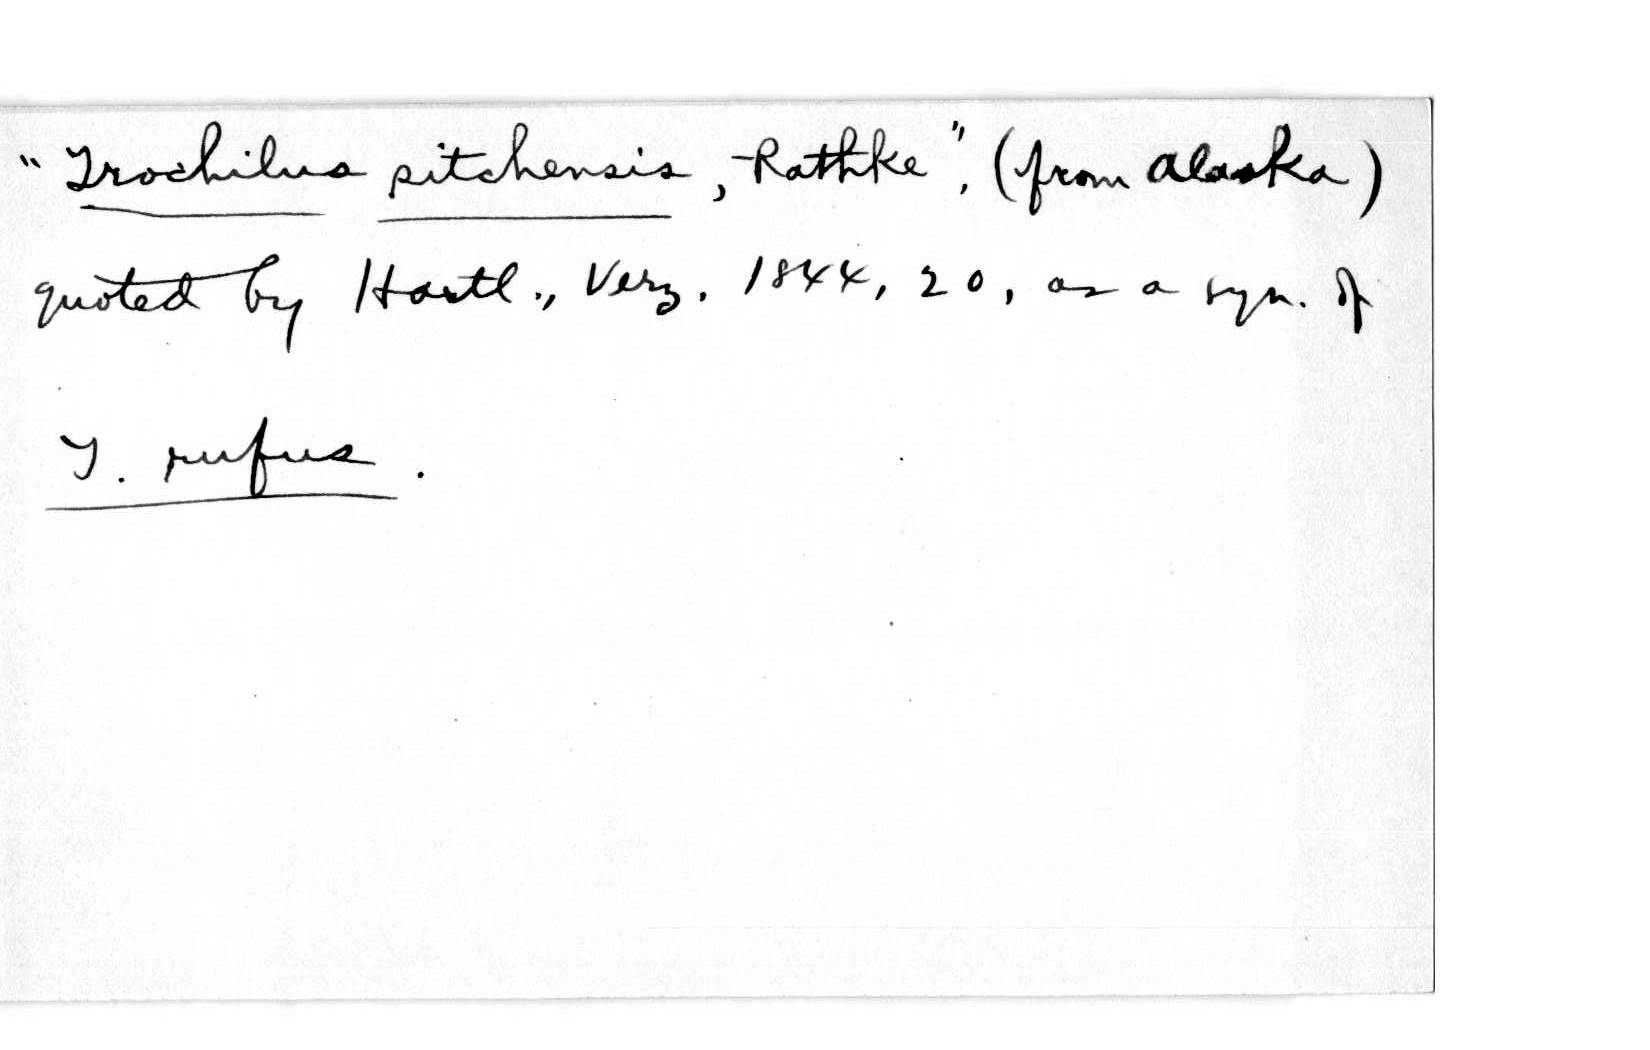 "Trochilus sitchensis, Rathke", (from Alaska)
quoted by Hartl., Verz. 1844, 20, as a syn. of
T. rufus.